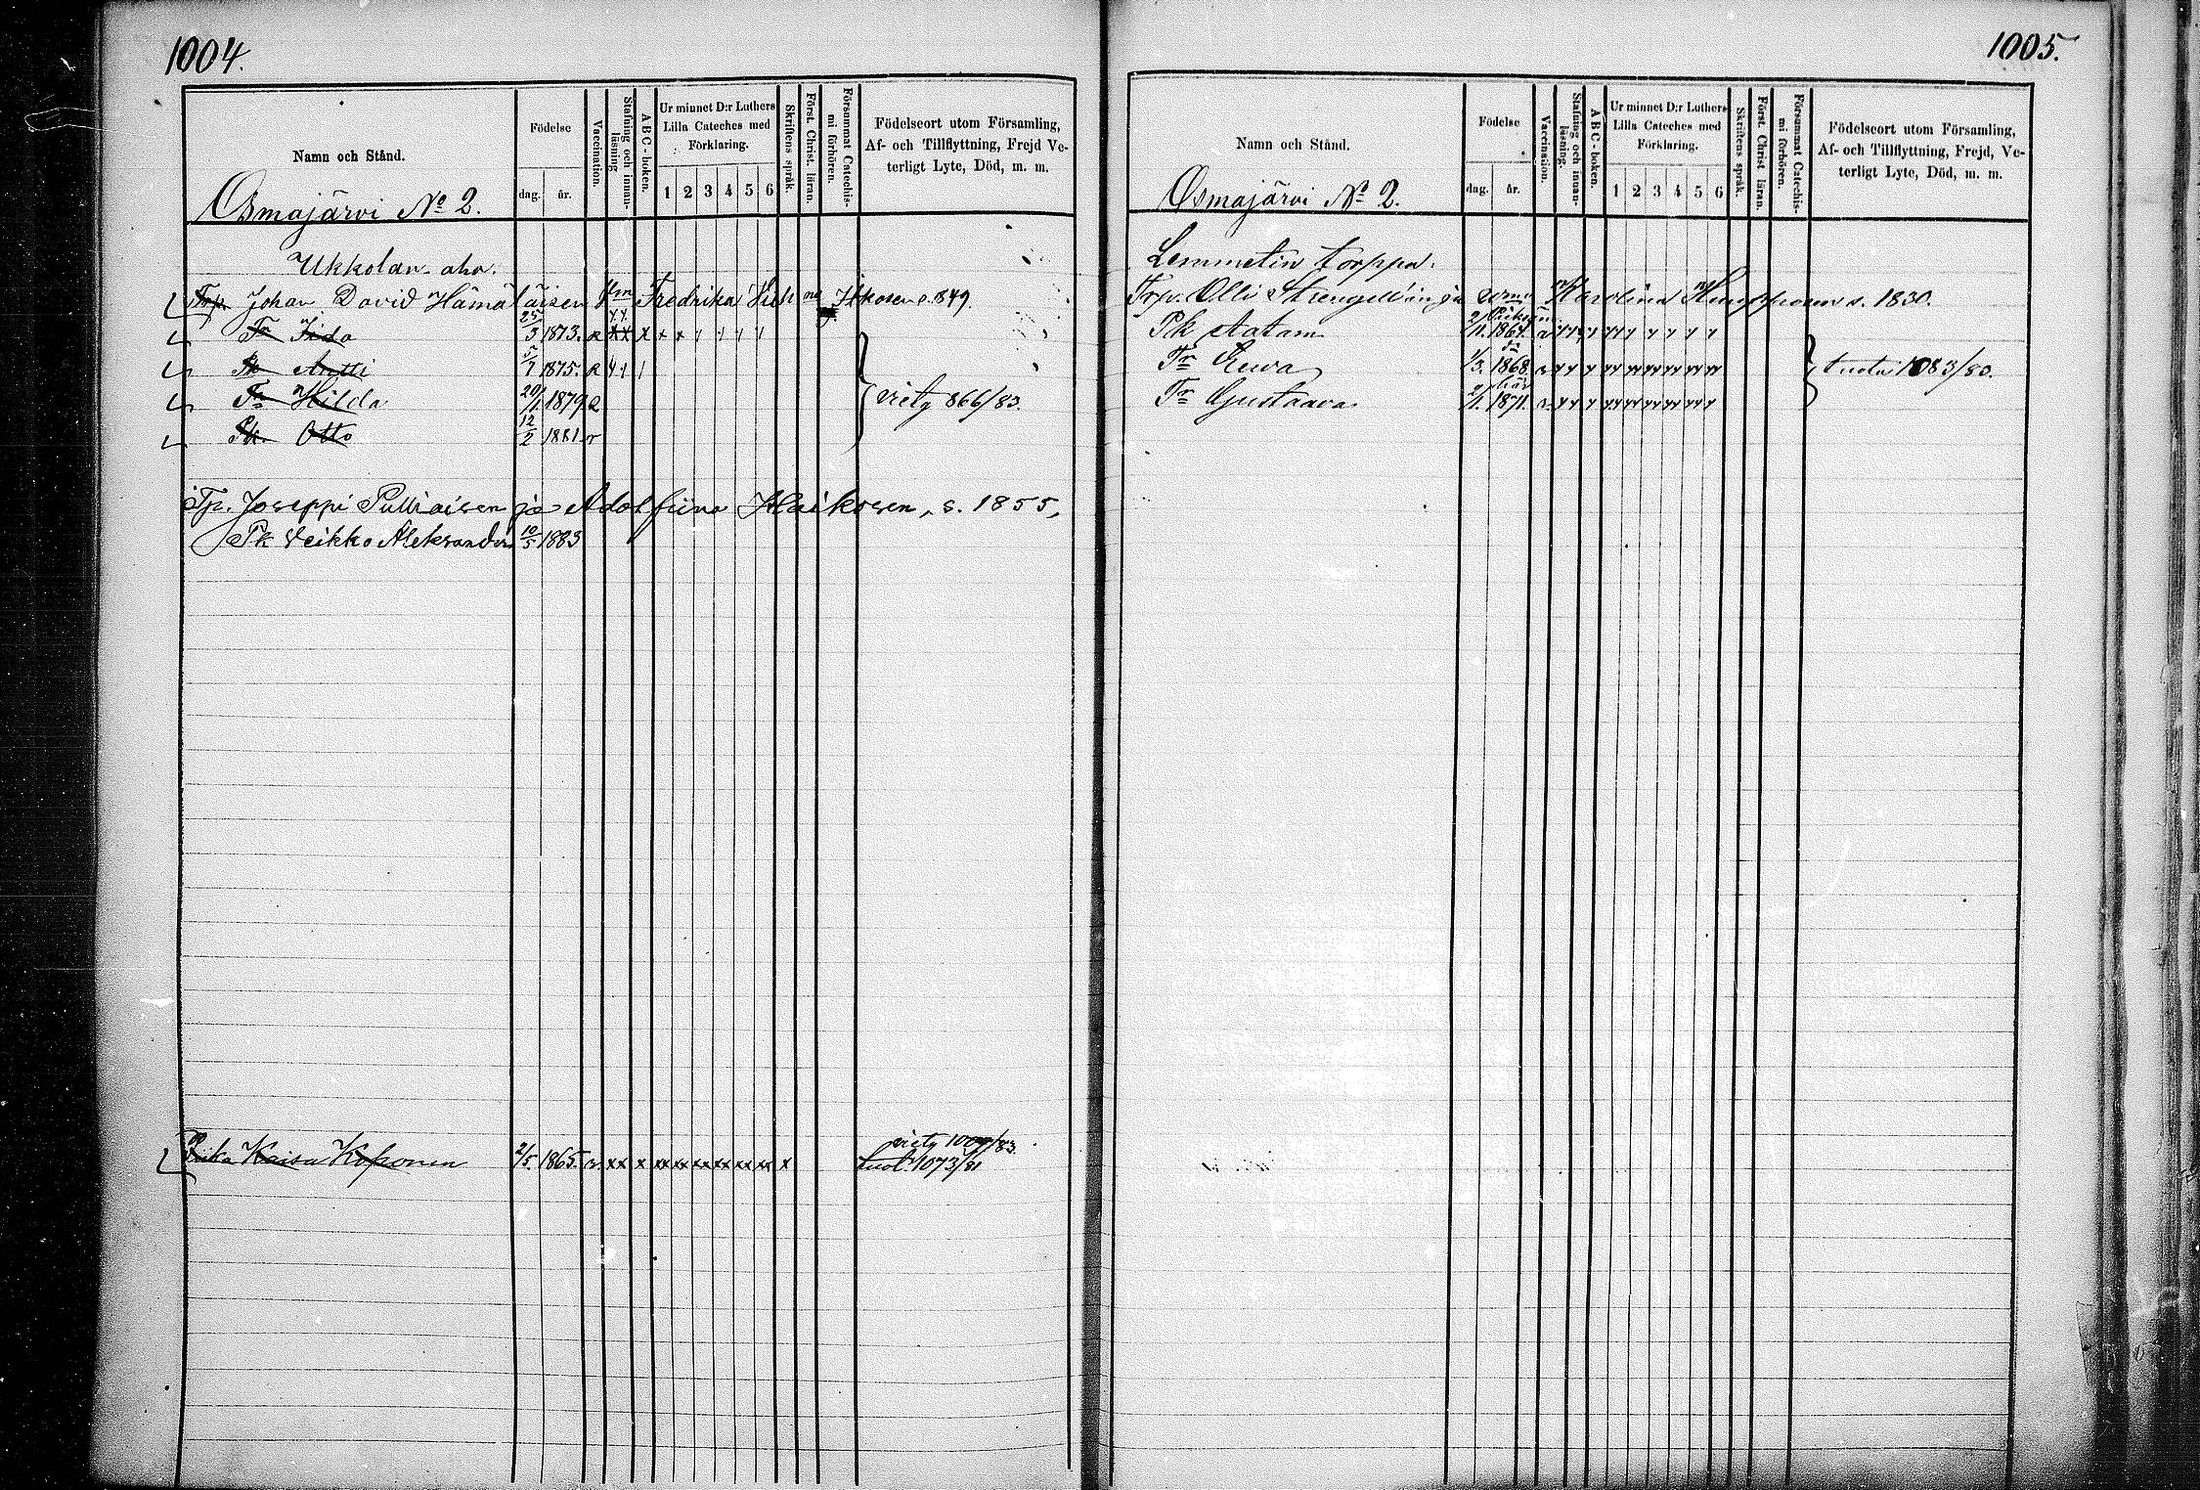 1004.
Namn och Stånd.
Födelse
dag.
år.
Vaccination.
Stafning och innan-
läsning
A B C - boken.
Ur minnet D:r Luthers
Lilla Cateches med
Förklaring.
1 2 3 4 5 6
Skriftens språk.
Först. Christ. läran.
Försummat Catechis-
mi förhören.
Födelseort utom Församling,
Af- och Tillflyttning, Frejd Ve-
terligt Lyte, Död, m. m.
Osmajärvi No 2.
Ukkolan aho.
Trp. Johan David Hämäläinen Fredrika
Tr Iida 25/3 1873.
Pk Antti 5/7 1875.
Tr Hilda 20/1 1879
Pk. Otto 12/2 1881
viety 866/83.
Tp. Joseppi Pulliainen ja Adolfiina Haikosen, s. 1855,
Pk Veikko Aleksander 10/5 1883
Kaisa Koponen 2/5. 1865.
tuol. 1073/81
1005.
Namn och Stånd.
Födelse
dag.
år.
Vaccination.
Stafning och innan-
läsning.
A B C - boken.
Ur minnet D:r Luthers
Lilla Cateches med
Förklaring.
1 2 3 4 5 6
Skriftens språk.
Först. Christ läran.
Försummat Catechis-
mi förhören.
Födelseort utom Församling,
Af- och Tillflyttning, Frejd, Ve-
terligt Lyte, Död, m. m.
Osmajärvi No 2.
Lemmetin torppa.
Trp. Olli Strengell'in ja Karolina s. 1830.
Pk Aatam 1864.
Tr Eewa 1/3. 1868.
Tr Gustaava 1871.
1083/80.